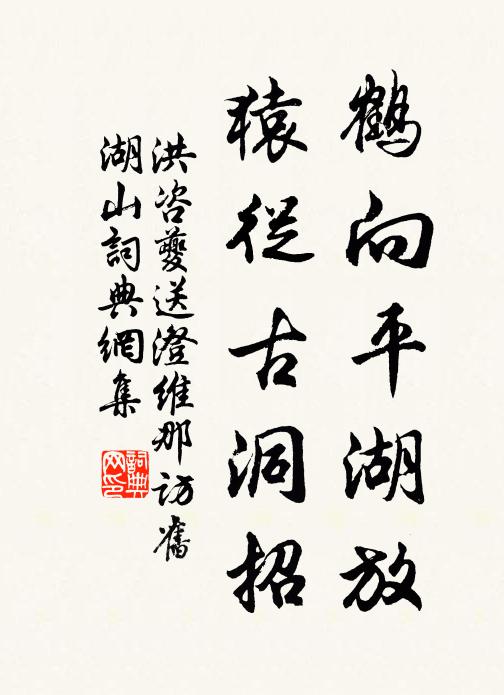 鶴向平湖放
猿從古洞招
洪咨夔送澄維那訪舊
湖山詞典網集
詞典
网印